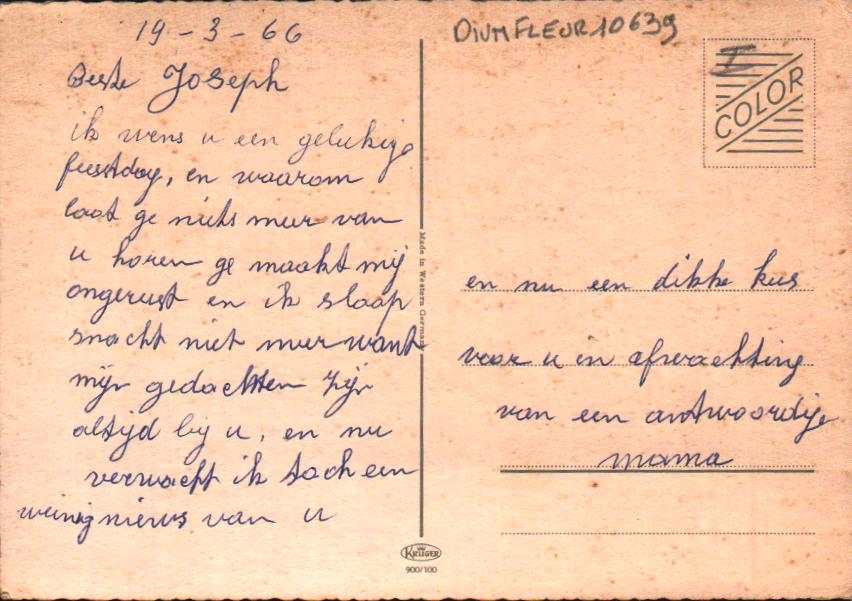 19-3-66
DIUMFLEUR10639
Beste Joseph
COLOR
ik wens u een gelukige
feestdag, en waarom
laat ge niets meer van
u horen ge maakt mij
ongerust en ik slaap
snacht niet meer want
mijn gedachten zijn
altijd bij u, en nu
verwacht ik toch een
weinig nieuws van u
Made in Western Germany
en nu een dikke kus
voor u in afwachting
van een antwoordije
mama
KRÜGER
900/100